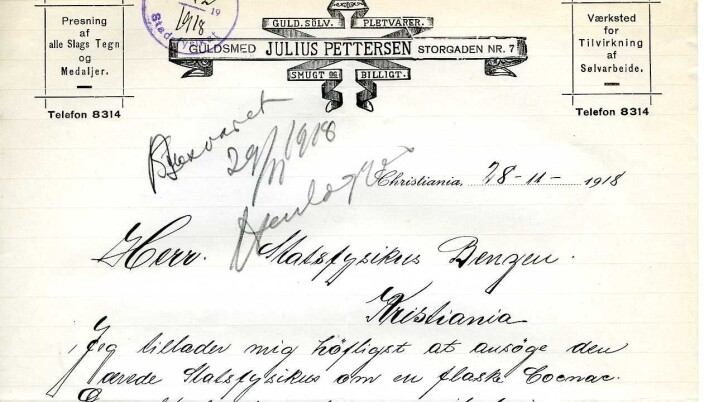 1918
19
Stadsfysikat
Presning
af
alle Slags Tegn
og
Medaljer.
Telefon 8314
GULD. SÖLV. PLETVARER.
GULDSMED JULIUS PETTERSEN STORGADEN NR. 7
SMUGT OG BILLIGT.
Værksted
for
Tilvirkning
af
Sølvarbeide.
Telefon 8314
29/11 1918
Christiania, 28-11-1918
Herr. Statsfysikus Benzen.
Kristiania
Jeg tillader mig höfligst at ansöge den
ærede Statsfysikus om en flaske Cocnac.